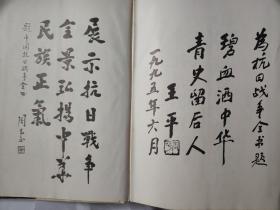 为抗日战争全书题
碧血洒中华
青史留后人
王平
一九九五年六月
展示抗日战争
全景弘揚中華
民族正氣